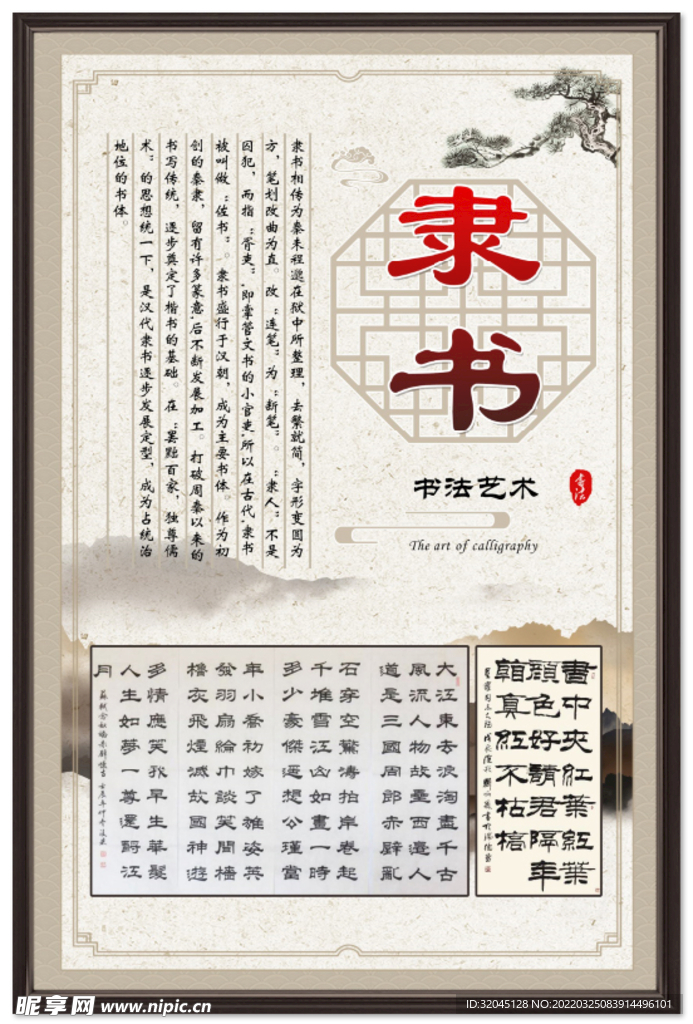 隶书
书法艺术
书法
The art of calligraphy
隶书相传为秦末程邈在狱中所整理，去繁就简，字形变圆为
方，笔划改曲为直。改“连笔”为“断笔”。“隶人”不是
囚犯，而指“胥吏”，即掌管文书的小官吏，所以在古代，隶书
被叫做“佐书”。隶书盛行于汉朝，成为主要书体。作为初
创的秦隶，留有许多篆意，后不断发展加工。打破周秦以来的
书写传统，逐步奠定了楷书的基础。在“罢黜百家，独尊儒
术”的思想统一下，是汉代隶书逐步发展定型，成为占统治
地位的书体。
書中夾紅葉紅葉
顏色好請君隔年
看真紅不枯槁
大江東去浪淘盡千古
風流人物故壘西邊人
道是三國周郎赤壁亂
石穿空驚濤拍岸卷起
千堆雪江山如畫一時
多少豪傑遥想公瑾當
年小喬初嫁了雄姿英
發羽扇綸巾談笑間檣
櫓灰飛煙滅故國神遊
多情應笑我早生華髮
人生如夢一尊還酹江
月
蘇軾念奴嬌赤壁懷古
昵享网 www.nipic.cn
ID:32045128 NO:20220325083914496101